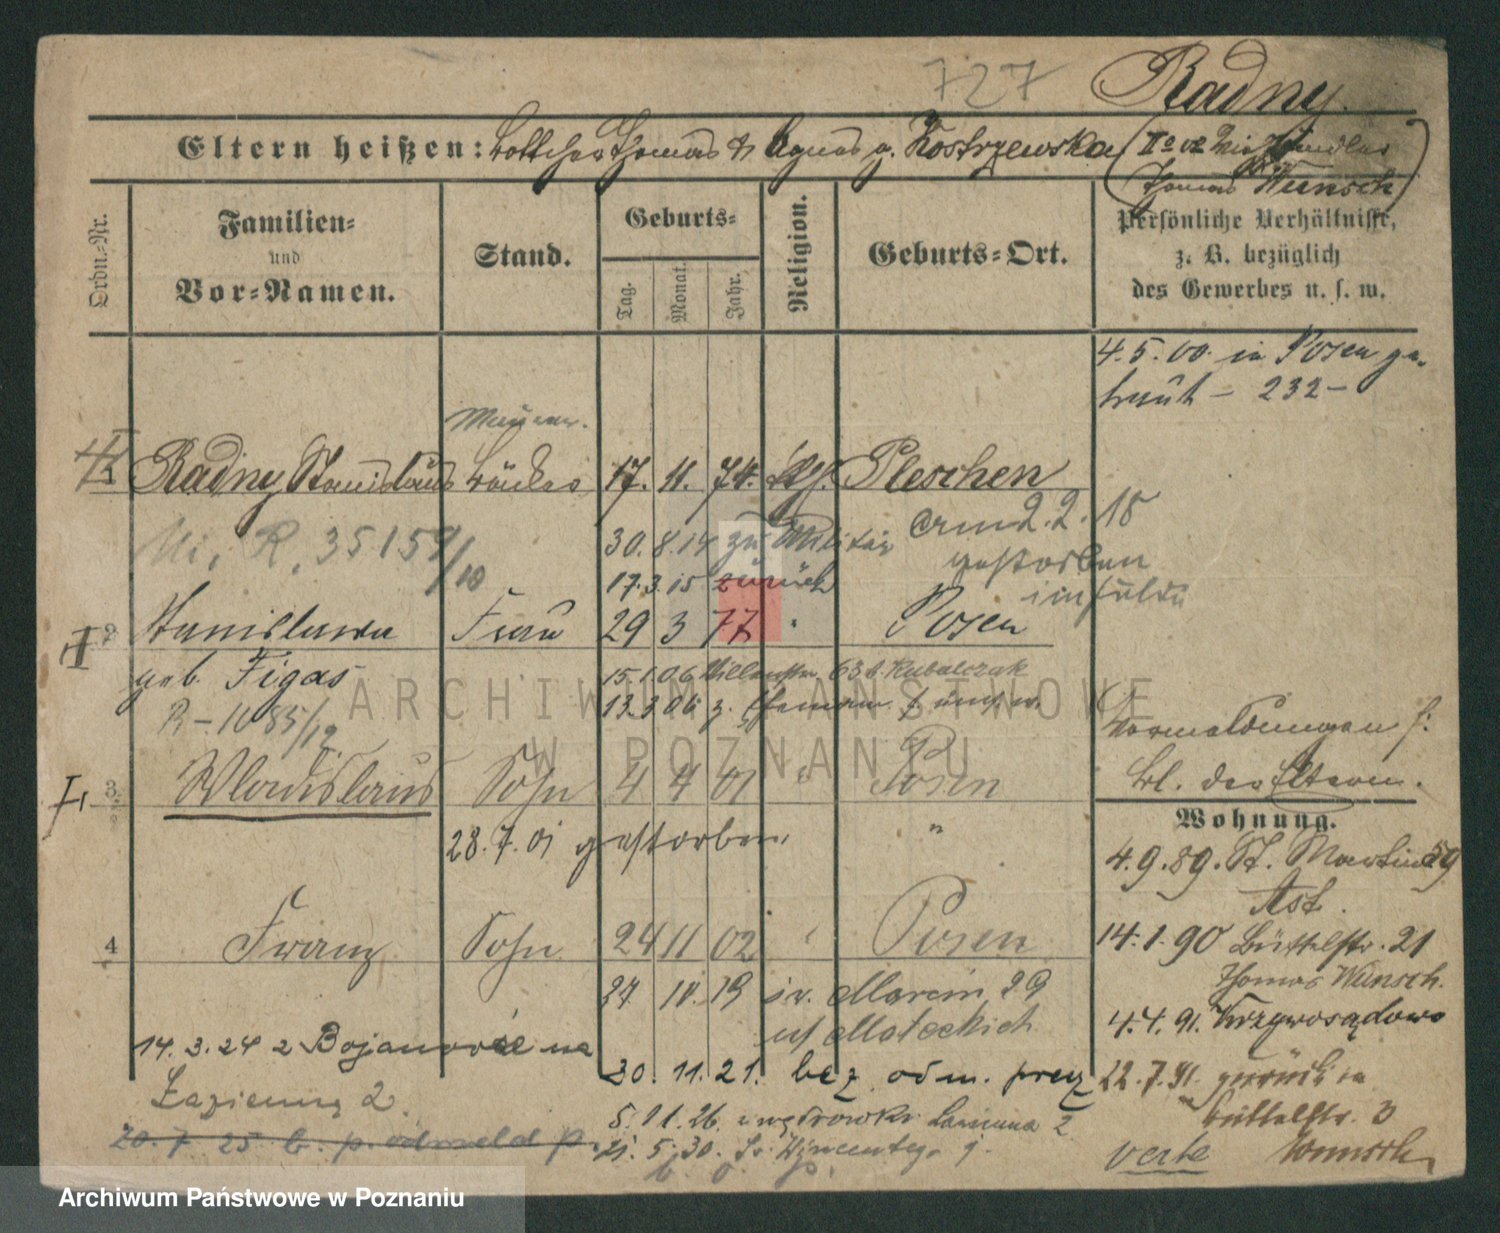 727 Radny.
Eltern heißen: Böttcher Thomas & Agnes g. Kostrzewska (II
Thomas Wunsch)
Ordn.-Nr.
Familien-
und
Vor-Namen.
Stand.
Geburts-
Tag.
Monat.
Jahr.
Religion.
Geburts-Ort.
Persönliche Verhältnisse,
z. B. bezüglich
des Gewerbes u. s. w.
4.5.00. in Posen ge-
traut - 232 -
Maurer.
Radny Stanislaus 17. 11. 74. Pleschen
Mi, R, 35159/10
30. 8. 14 zu Militär
17. 3. 15 zurück
am 2. 2. 18
gestorben
in Fulda
2 Stanislawa Frau 29 3 77 " Posen
geb. Figas
R-1085/12
15. 1. 06 63 b. Kubalczak
3 Wladislaus Sohn 4 4 01 " Posen
28. 7. 01 gestorben. "
4 Franz Sohn 24 11 02 " Posen
27 10. 19 Marcin 29
Mateckich
14. 3. 24 z Bojanowa na
Łazienną 2.
30. 11. 21. bez odm. precz
20. 7. 25 b. p. odmeld p.
5. 11. 26. Łazienna 2
21. 5. 30.
b. o. p.
Vormeldungen s:
Bl. der Eltern.
Wohnung.
4. 9. 89. St. Martin 59
14. 1. 90 Büttelstr. 21
Thomas Wunsch.
4. 4. 91. Krzywosądowo
22. 7. 91. zurück in
Büttelstr. 3
verte Wunsch
ARCHIWUM PAŃSTWOWE
W POZNANIU
Archiwum Państwowe w Poznaniu